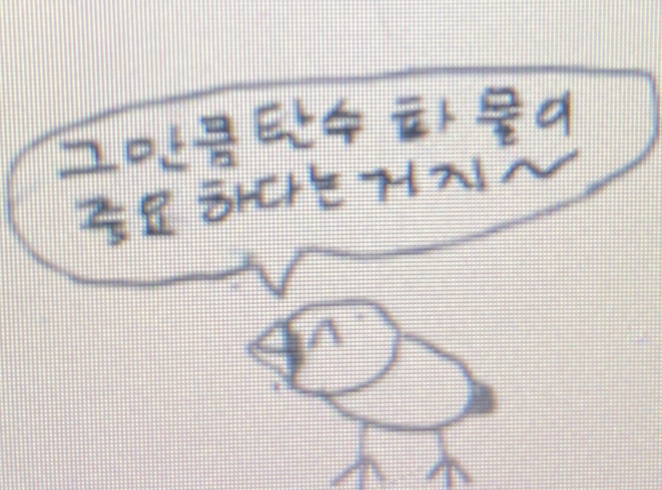 그만큼 탄수화물이
중요하다는거지~